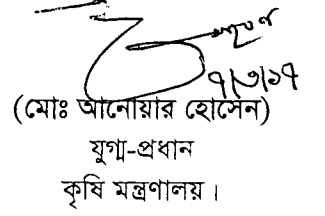 ৭/৩/১৭
(মোঃ আনোয়ার হোসেন)
যুগ্ম-প্রধান
কৃষি মন্ত্রণালয়।